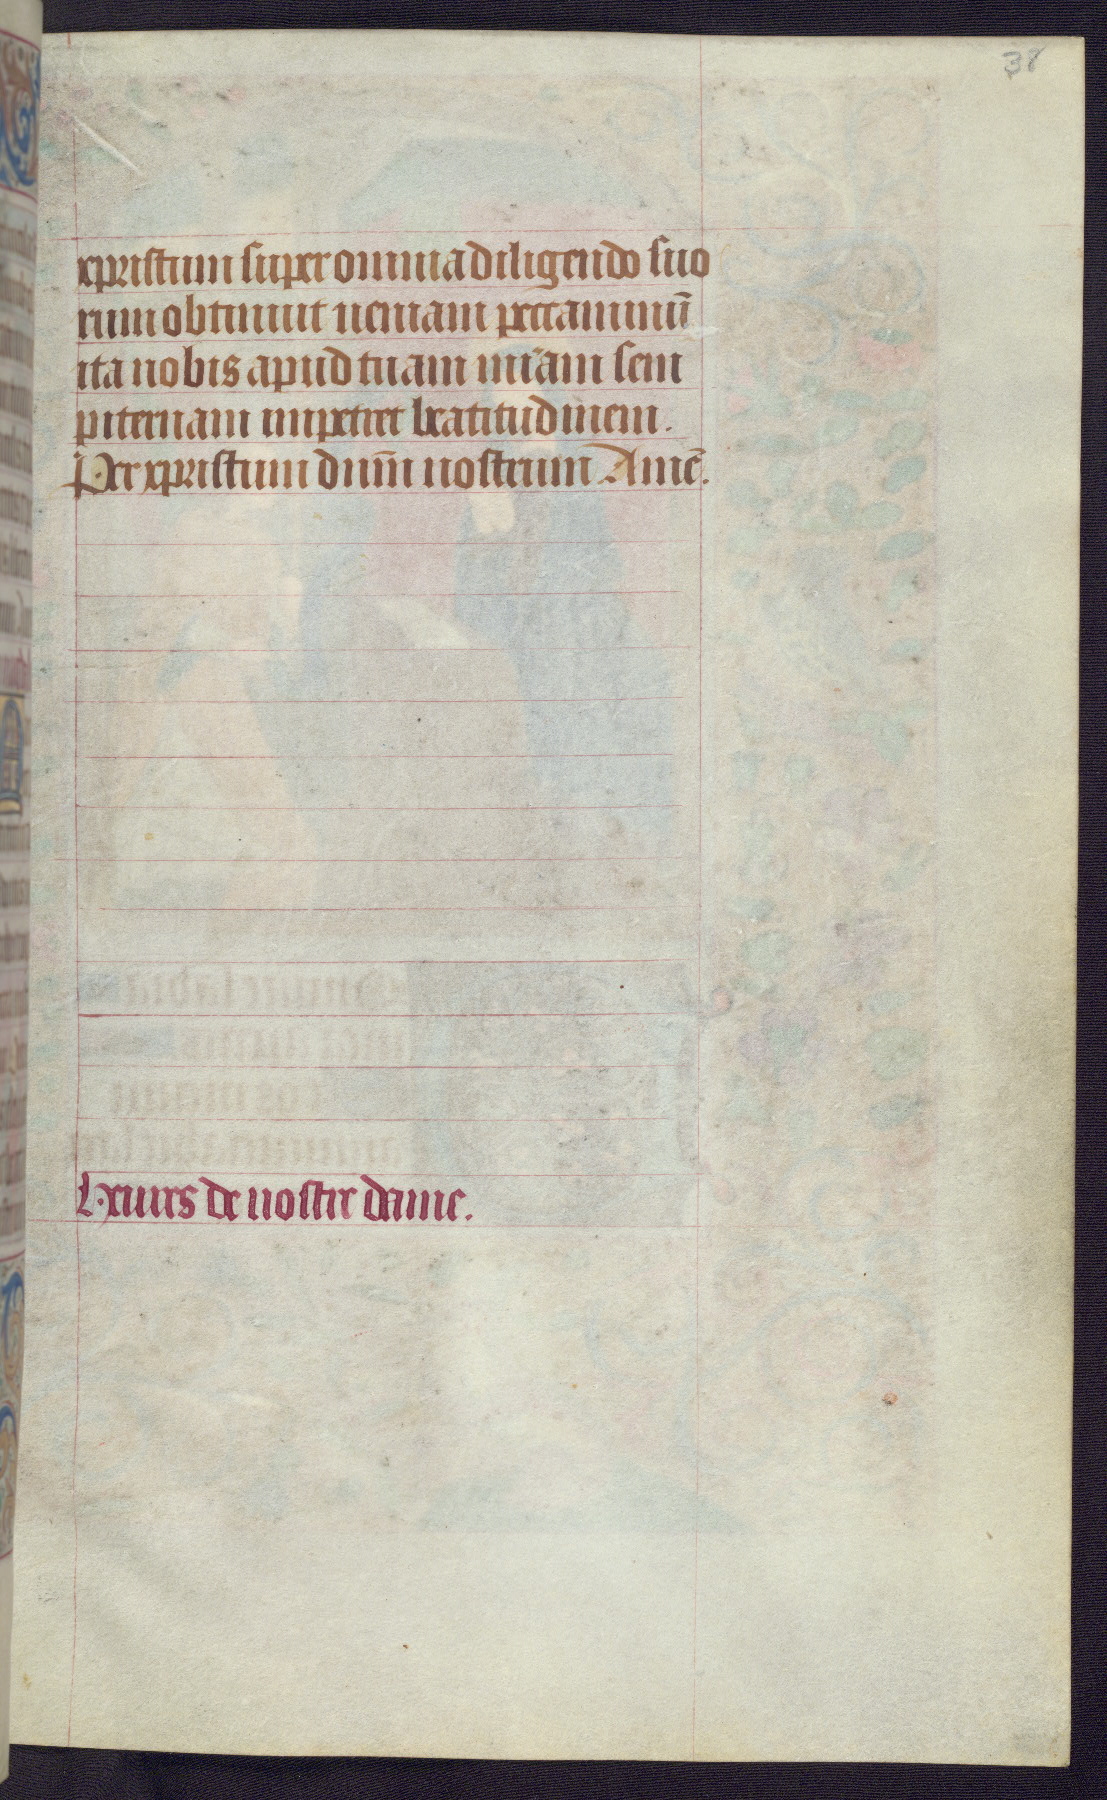 38
xpristum super omnia diligendo suo
rum obtinuit veniam peccaminū
ita nobis apud tuam mīam sem
piternam impetret beatitudinem.
Per xpristum dnm̄ nostrum Amē.
Heures de nostre dame.